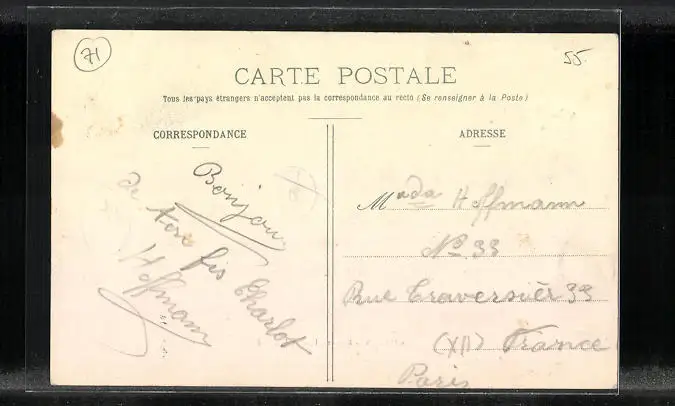 71
55.
CARTE POSTALE
Tous les pays étrangers n'acceptent pas la correspondance au recto (Se renseigner à la Poste)
CORRESPONDANCE
ADRESSE
Bonjour
de ton fis Charlot
Hoffmann
Mada Hoffmann
No 33
Rue Traversièr 33
(XII) France
Paris